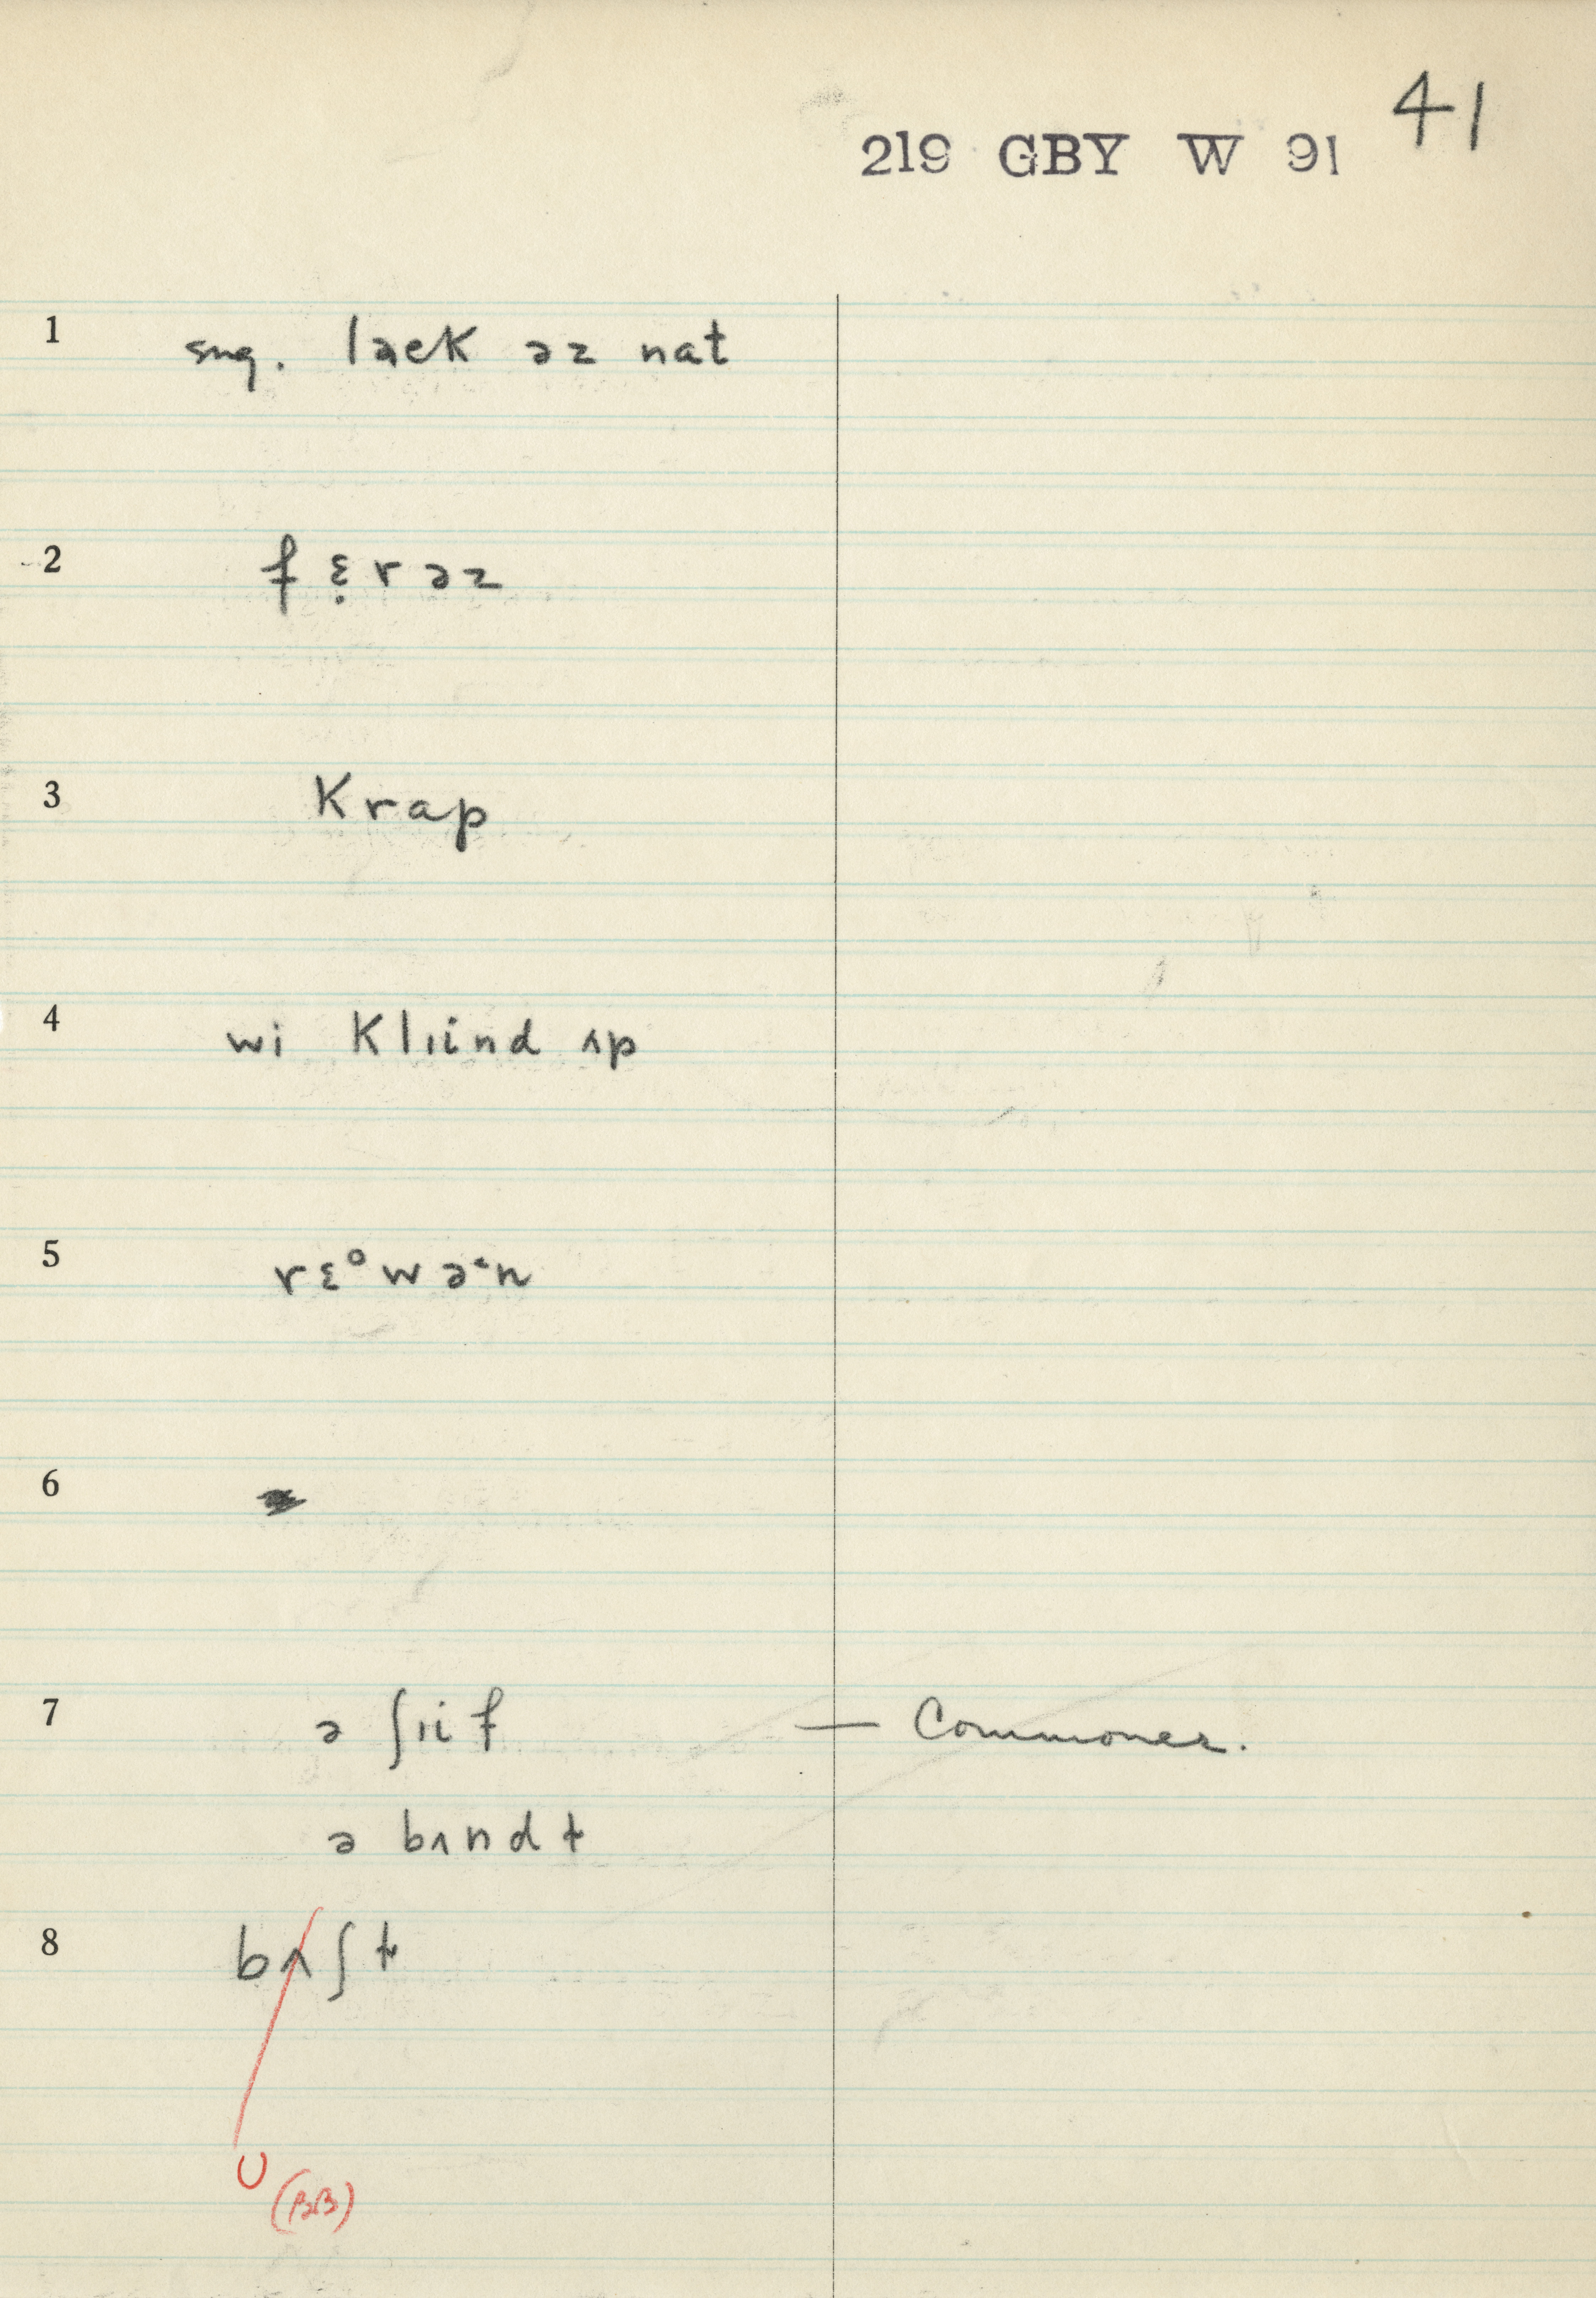 41
219 GBY W 91
1 sug. lɐek əz nat
2 f ɛ̣ r ə z
3 Krap
4 wi Klɪind ʌp
5 rɛ°wə·n
6
7 ə ʃɪif — Commoner.
ə bʌndɫ
8 bʌʃɫ
U (BB)